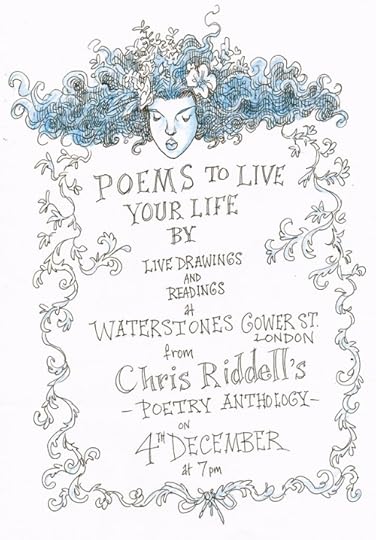 POEMS TO LIVE
YOUR LIFE
BY
LIVE DRAWINGS
AND
READINGS
at
WATERSTONES GOWER ST.
LONDON
from
Chris Riddell's
- POETRY ANTHOLOGY -
ON
4TH DECEMBER
at 7pm